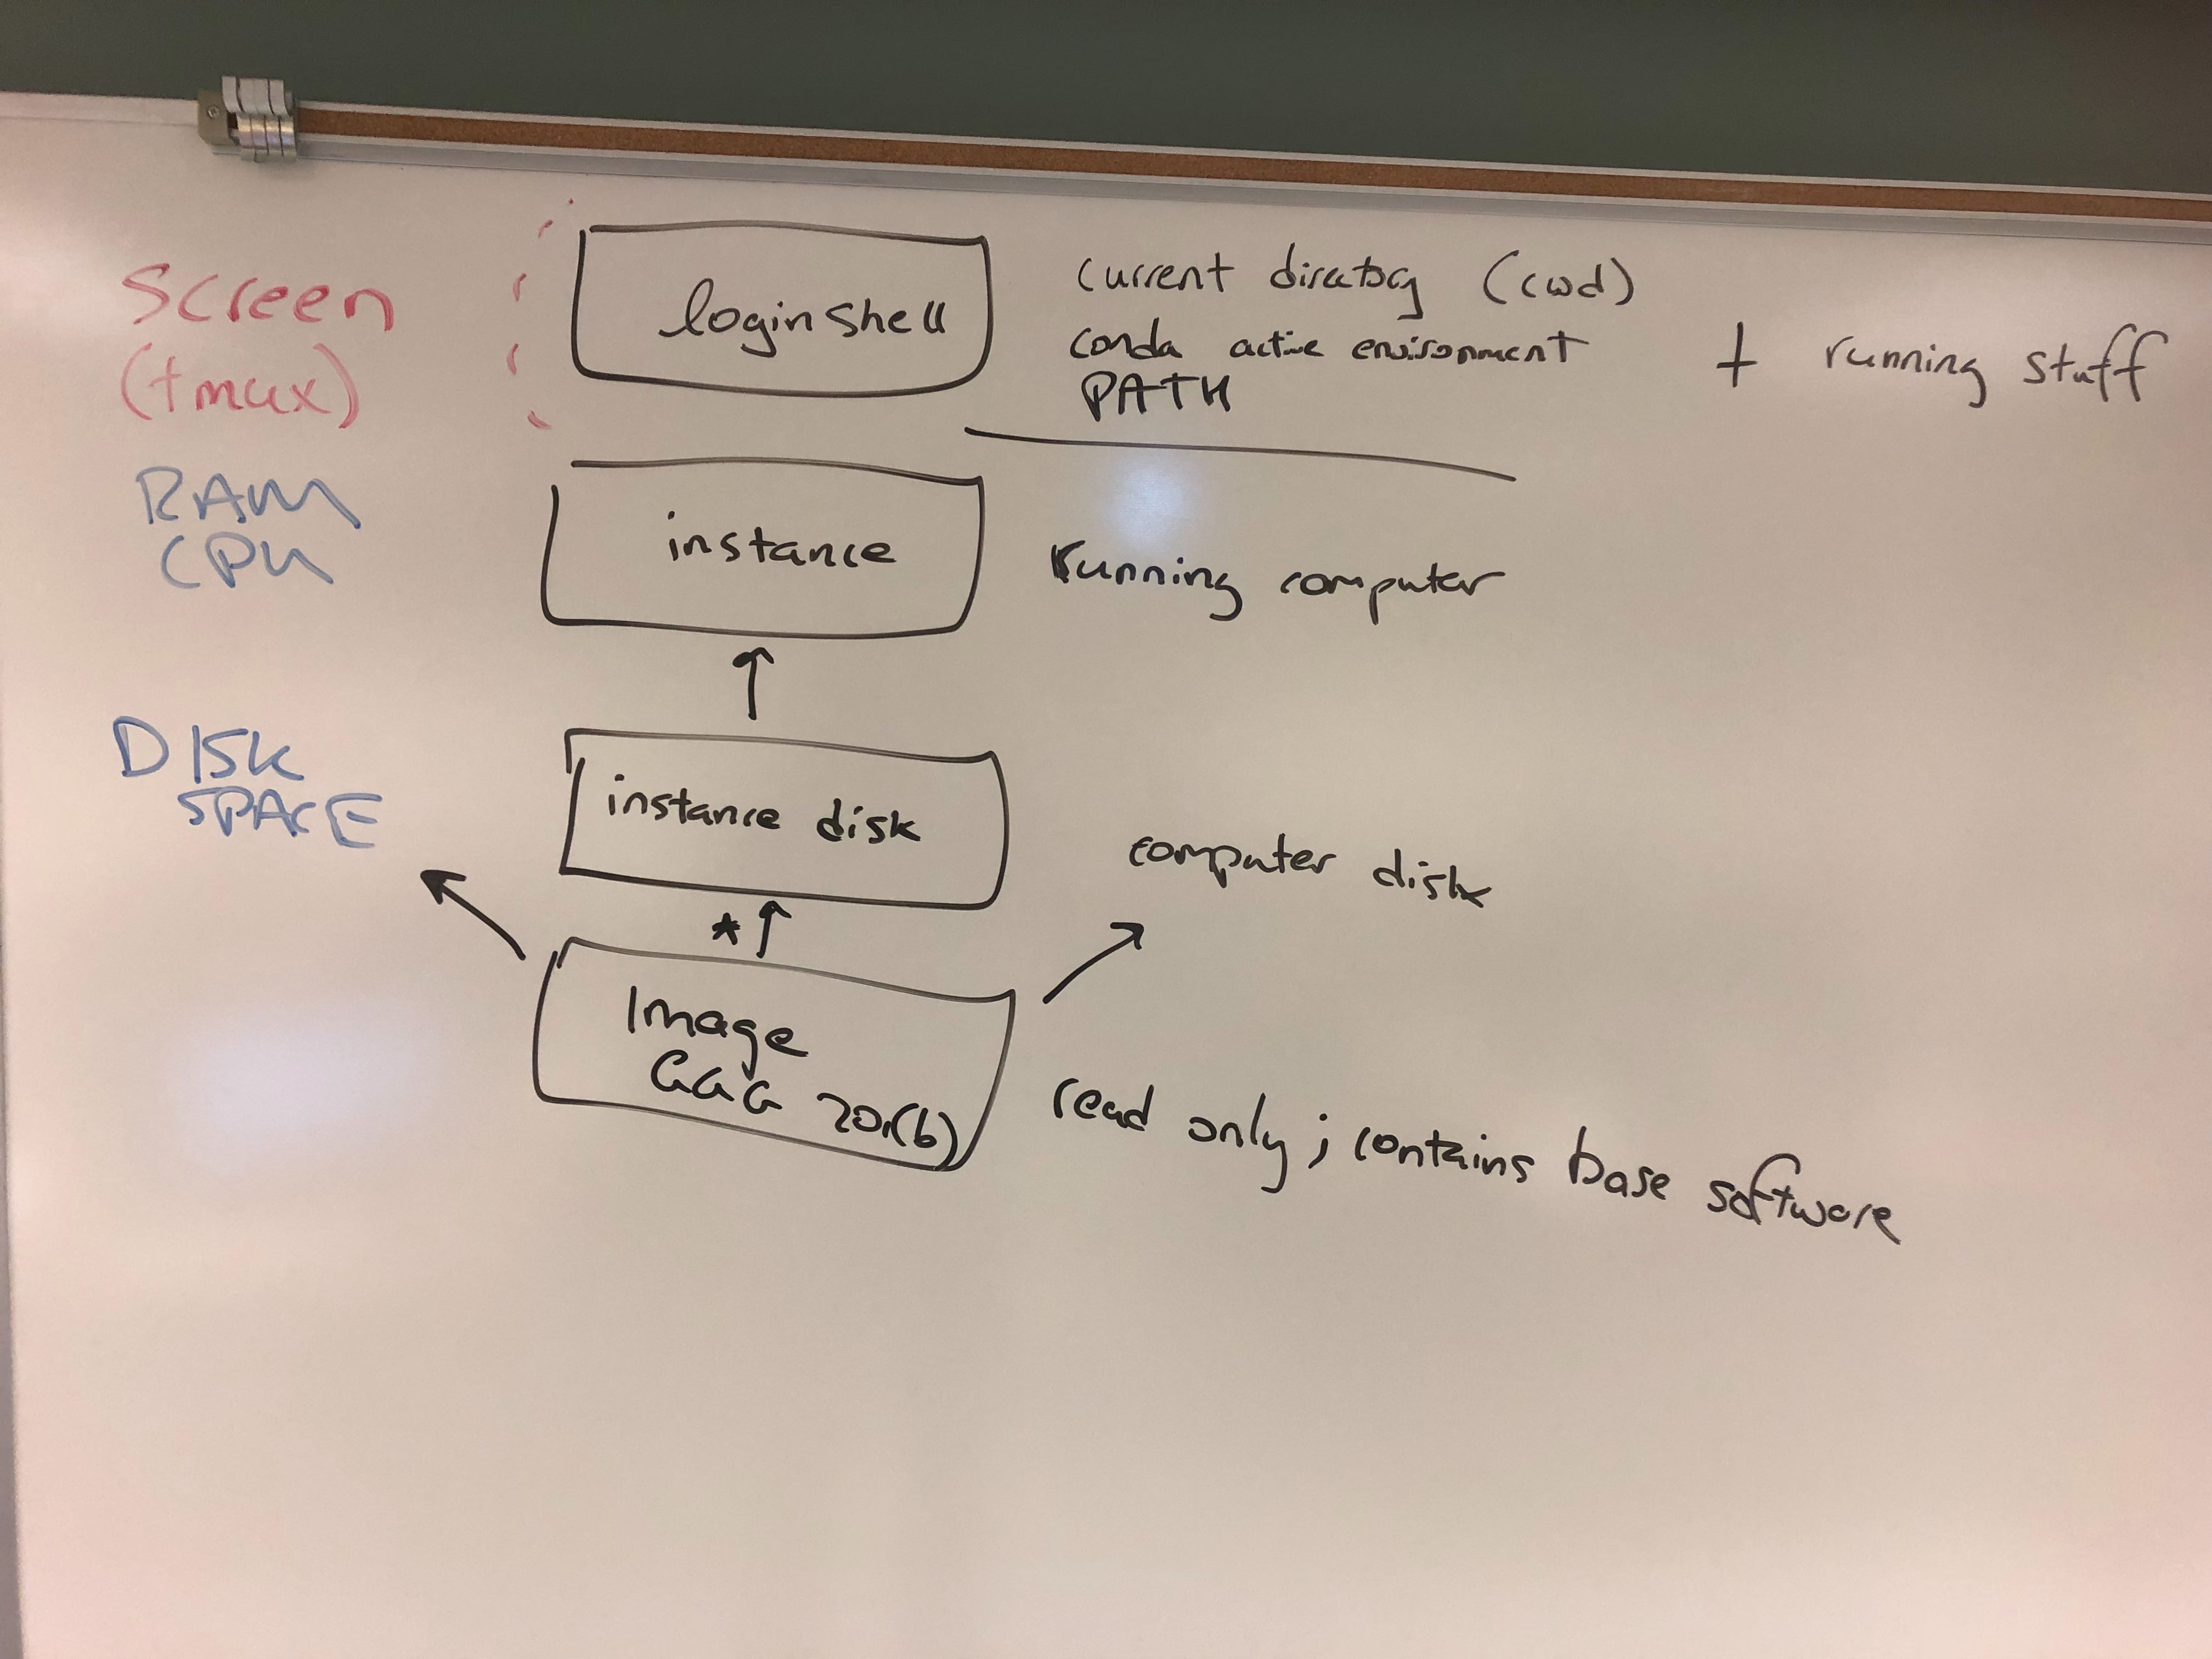 Screen
(tmux)
login shell
current directory (cwd)
conda active environment
PATH
+ running stuff
RAM
CPU
instance
running computer
DISK
SPACE
instance disk
computer disk
*
Image
GGG 201(b)
read only; contains base software